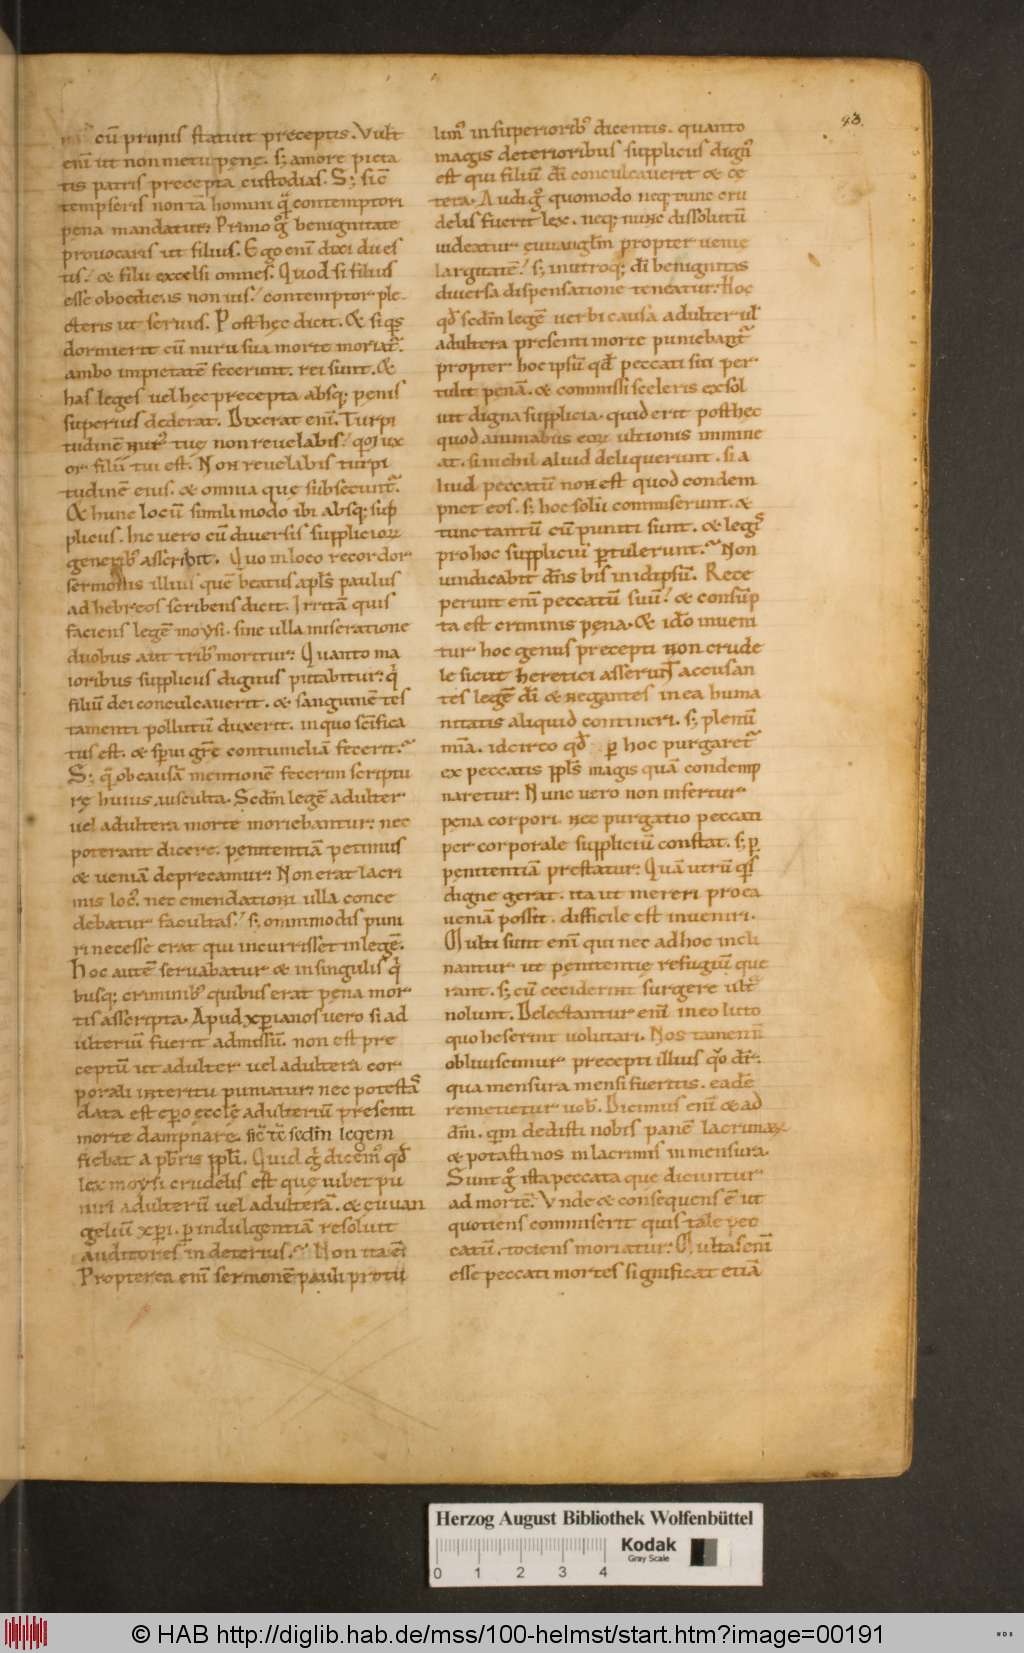 cū primis statuit preceptis. Vult
enī ut non metu penę. s; amore pieta
tis patris precepta custodias. S; si cō
tempseris non tā homini q̄ contemptori
pena mandatur; Primo gͦ benignitate
prouocaris ut filius. Ego enī dixi dii es
tis. & filii excelsi omnes. Quod si filius
esse oboediens non uis. contemptor ple
cteris ut seruus. Post hec dicit. & si qͥs
dormierit cū nuru sua morte moriat᷑.
ambo impietatē fecerunt. rei sunt. &
has leges uel hęc precepta absq; penis
superius dederat. Dixerat enī. Turpi
tudinē nur᷒ tuę non reuelabis. qͦm ux
or filii tui est. Non reuelabis turpi
tudinē eius. & omnia quę subsecunt᷑.
& hunc locū simili modo ibi absq; sup
pliciis. hic uero cū diuersis suppliciorꝝ
generibꝰ asscribit. Quo in loco recordor
sermonis illius quē beatus apl̄s paulus
ad hebreos scribens dicit. Irritā quis
faciens legē moysi. sine ulla miseratione
duobus aut tribꝰ moritur; Quanto ma
ioribus suppliciis dignus putabitur; qͥ
filiū dei conculcauerit. & sanguinē tes
tamenti pollutū duxerit. in quo sc̄ifica
tus est. & sp̄ui gr̄ę contumeliā fecerit.
S; qͣ ob causā mentionē fecerim scriptu
rę huius ausculta. Scdm̄ legē adulter
uel adultera morte moriebantur; nec
poterant dicere. penitentiā petimus
& ueniā deprecamur; Non erat lacri
mis locꝰ. nec emendationi ulla conce
debatur facultas. s; omnimodis puni
ri necesse erat qui incurrisset in legē.
Hoc autē seruabatur & in singulis qͥ
busq; criminibꝰ quibus erat pena mor
tis asscripta. Apud xp̄ianos uero si ad
ulteriū fuerit admissū. non est pre
ceptū ut adulter uel adultera cor
porali interitu puniatur; nec potestas
data est ep̄o ęccl̄ę adulteriū presenti
morte dampnare. sic̄ tc̄ scdm̄ legem
fiebat a pb̄ris pp̄li. Quid gͥ dicemꝰ qd̄
lex moysi crudelis est quę iubet pu
niri adulterū uel adulterā. & euuan
geliū xp̄i. p̄ indulgentiā resoluit
auditores in deterius. Non ita ē
Propterea enī sermonē pauli protu
limꝰ in superioribꝰ dicentis. quanto
magis deterioribus suppliciis dignꝰ
est qui filiū dī conculcauerit & cę
tera. Audi gͦ quomodo neq; tunc cru
delis fuerit lex. neq; nunc dissolutū
uideatur euuangl̄m propter uenię
largitatē. s; in utroq; dī benignitas
diuersa dispensatione teneatur; Hoc
qd̄ scdm̄ legē uerbi causa adulter ul̄
adultera presenti morte puniebant᷑
propter hoc ipsū qd̄ peccati sui per
tulit penā. & commissi sceleris exsol
uit digna supplicia. quid erit post hęc
quod animabus eorꝝ ultionis immine
at. si nichil aliud deliquerunt. si a
liud peccatū non est quod condem
pnet eos. s; hoc solū commiserunt. &
tunc tantū cū puniti sunt. & legis
pro hoc suppliciū ptulerunt. Non
uindicabit dn̄s bis in idipsū. Rece
perunt enī peccatū suū. & consūp
ta est criminis pęna. & id̄o inueni
tur hoc genus precepti non crude
le sicut heretici asserunt accusan
tes legē dī & negantes in ea huma
nitatis aliquid contineri. s; plenū
mīa. idcirco qd̄ p hoc purgaret᷑
ex peccatis pp̄ls magis quā condemp
naretur; Nunc uero non infertur
pęna corpori. nec purgatio peccati
per corporale suppliciū constat. s; p
penitentiā prestatur; Quā utrū qͥs
digne gerat. ita ut mereri pro ea
ueniā possit. difficile est inueniri.
Multi sunt enī qui nec ad hoc incli
nantur ut penitentię refugiū que
rant. s; cū ceciderint surgere ult͛
nolunt. Delectantur enī in eo luto
quo heserint uolutari. Nos tamen n̄
obliuiscimur precepti illius qͦ dr̄.
qua mensura mensi fueritis. eadē
remetietur uob̄. Dicimus enī & ad
dm̄. qm̄ dedisti nobis panē lacrimarꝝ
& potasti nos in lacrimis in mensura.
Sunt gͦ ista peccata que dicuntur
ad mortē. Vnde & consequens ē ut
quotiens commiserit quis tale pec
catū. tociens moriatur; Multas enī
esse peccati mortes significat etiā
43.
Herzog August Bibliothek Wolfenbüttel
Kodak
Gray Scale
0 1 2 3 4
© HAB http://diglib.hab.de/mss/100-helmst/start.htm?image=00191